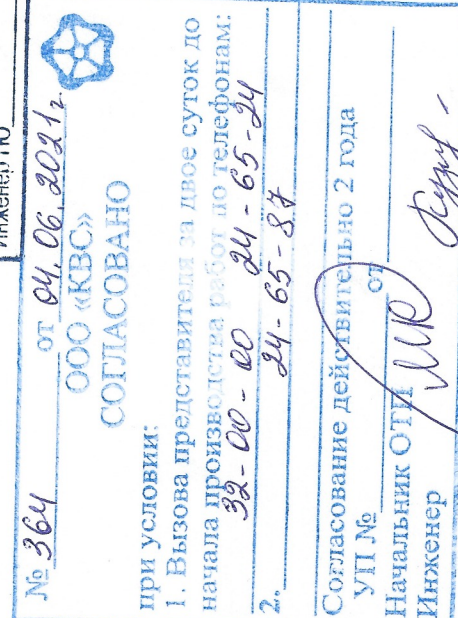 № 364 от 04.06.2021г.
ООО «КВС»
СОГЛАСОВАНО
при условии:
1. Вызова представителя за двое суток до
начала производства работ по телефонам:
32-00-00 24-65-24
2. 24-65-87
Согласование действительно 2 года
УП № от
Начальник ОТП
Инженер